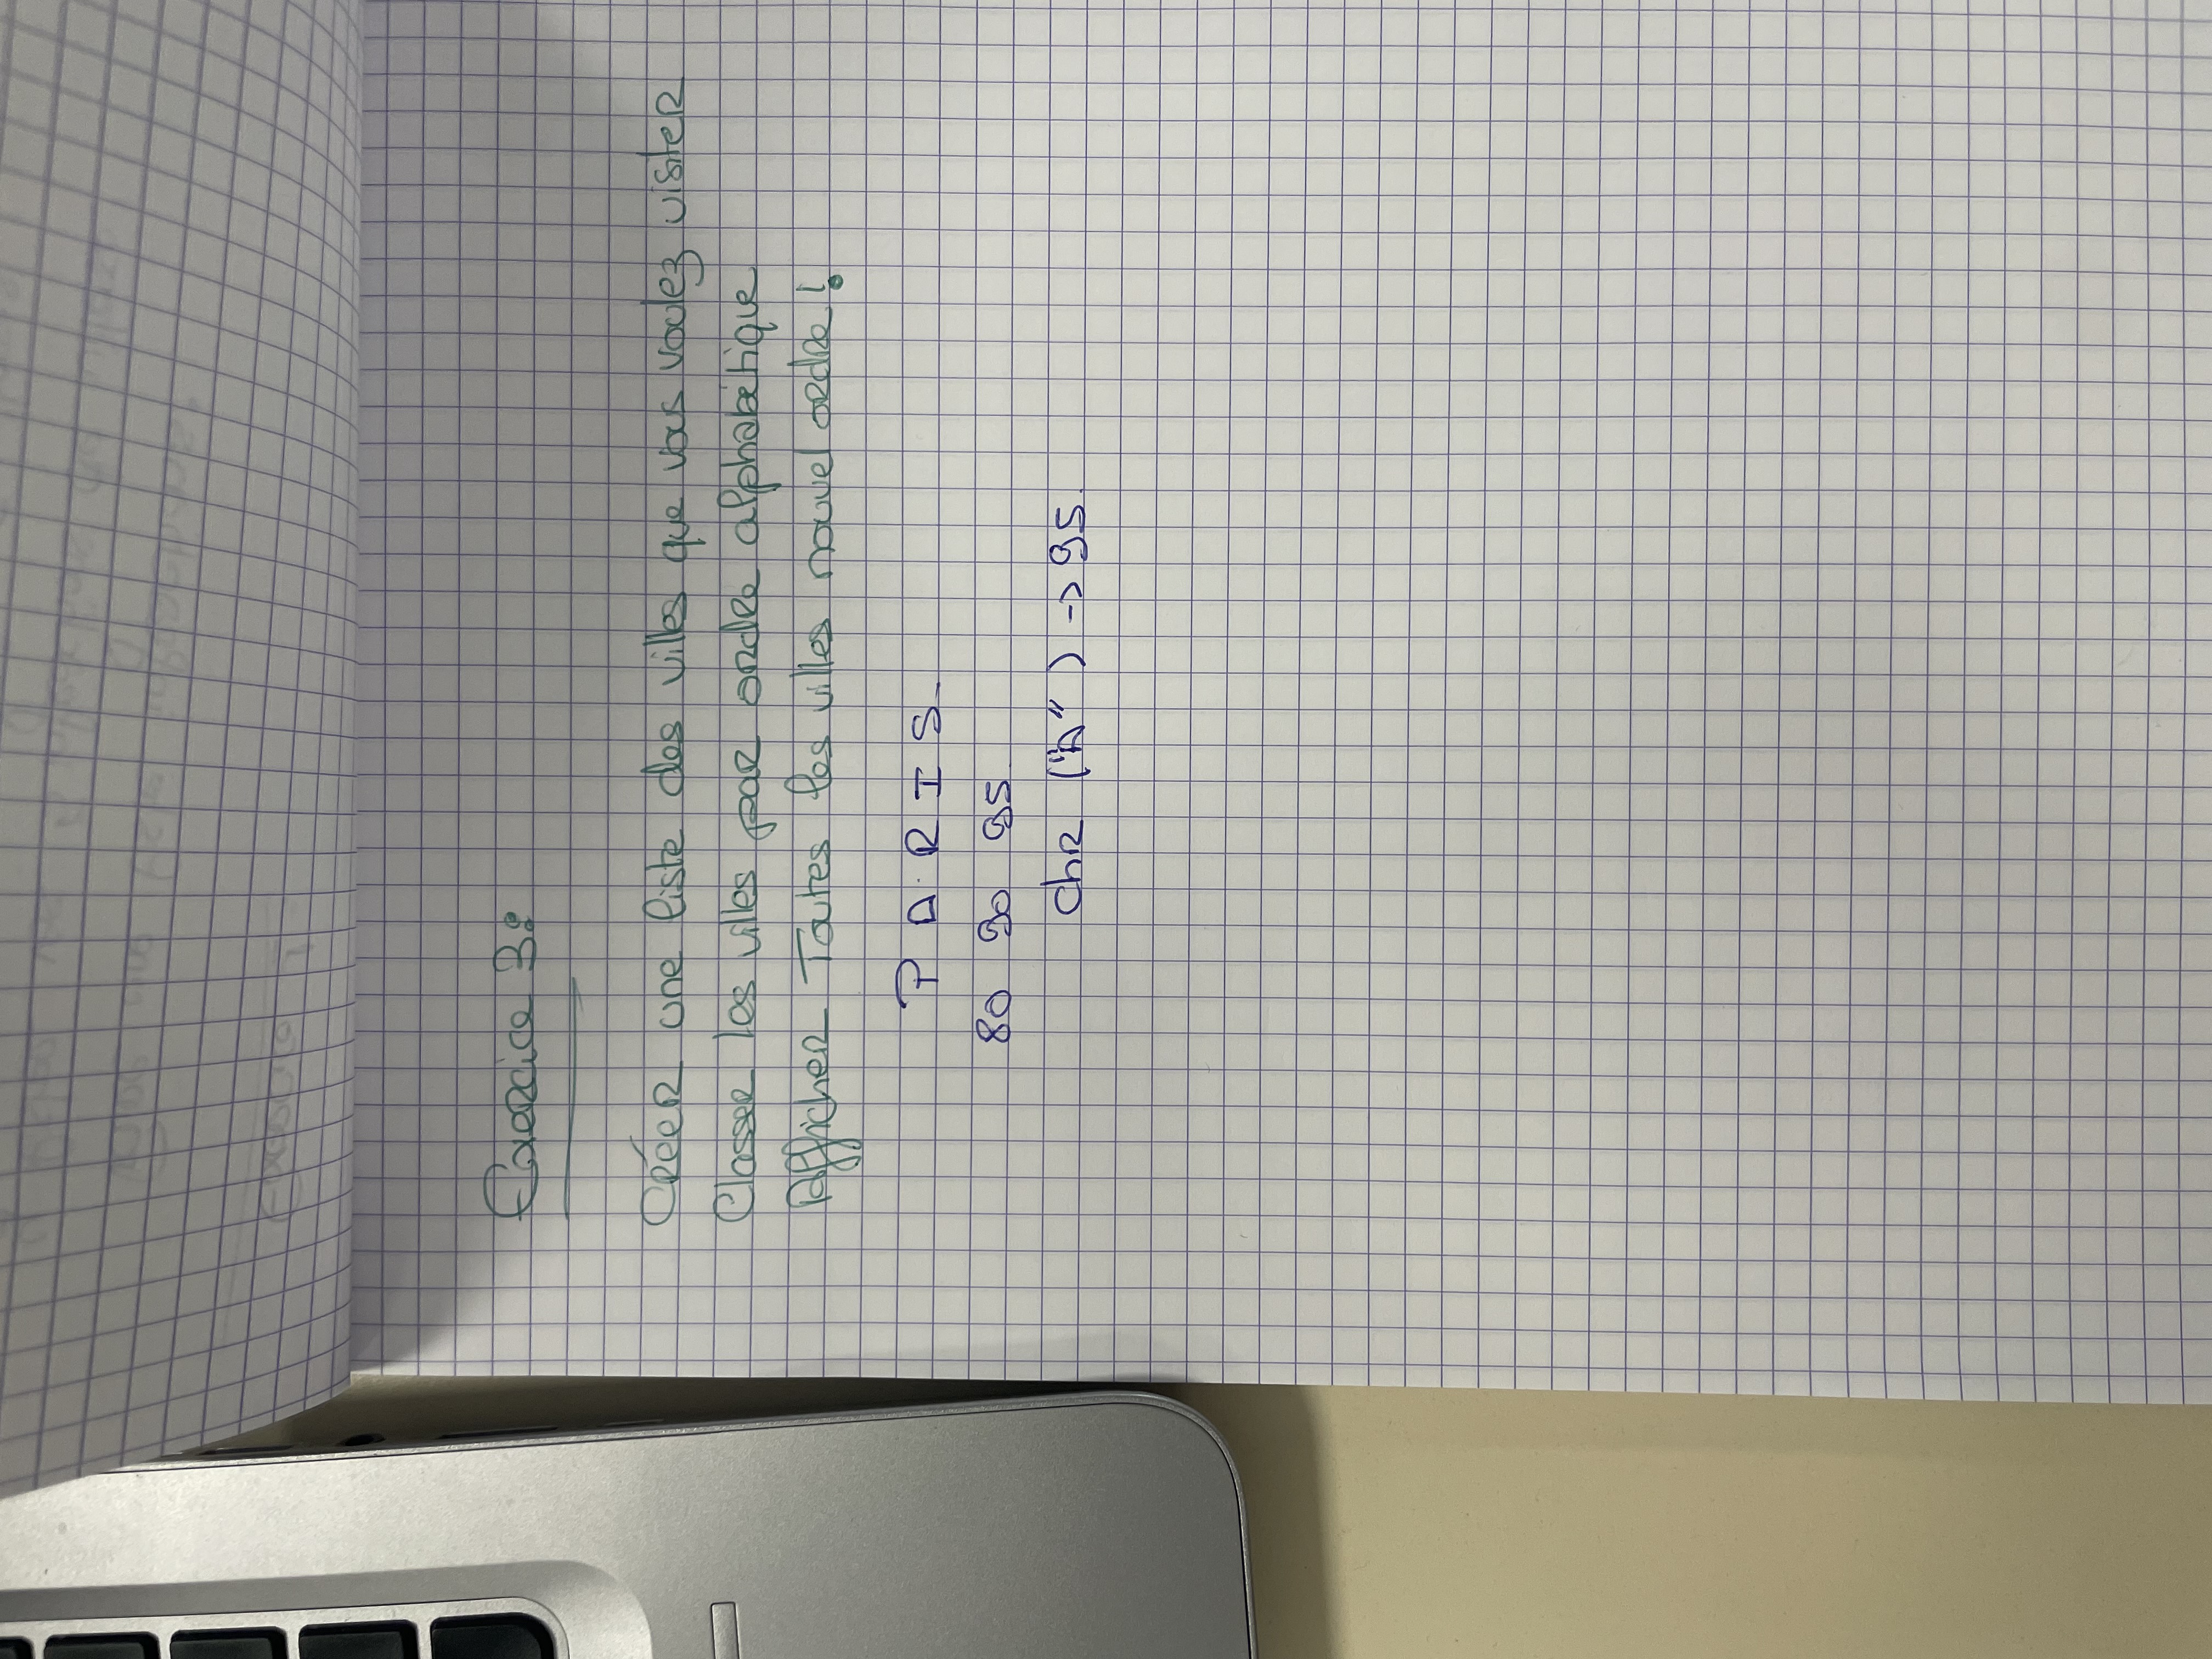 Exercice 3:
Créer une liste des villes que vous voulez visiter
Classer les villes par ordre alphabétique
Afficher Toutes les villes nouvel ordre !
P A R I S
80 90 95
chr ("A") -> 95.